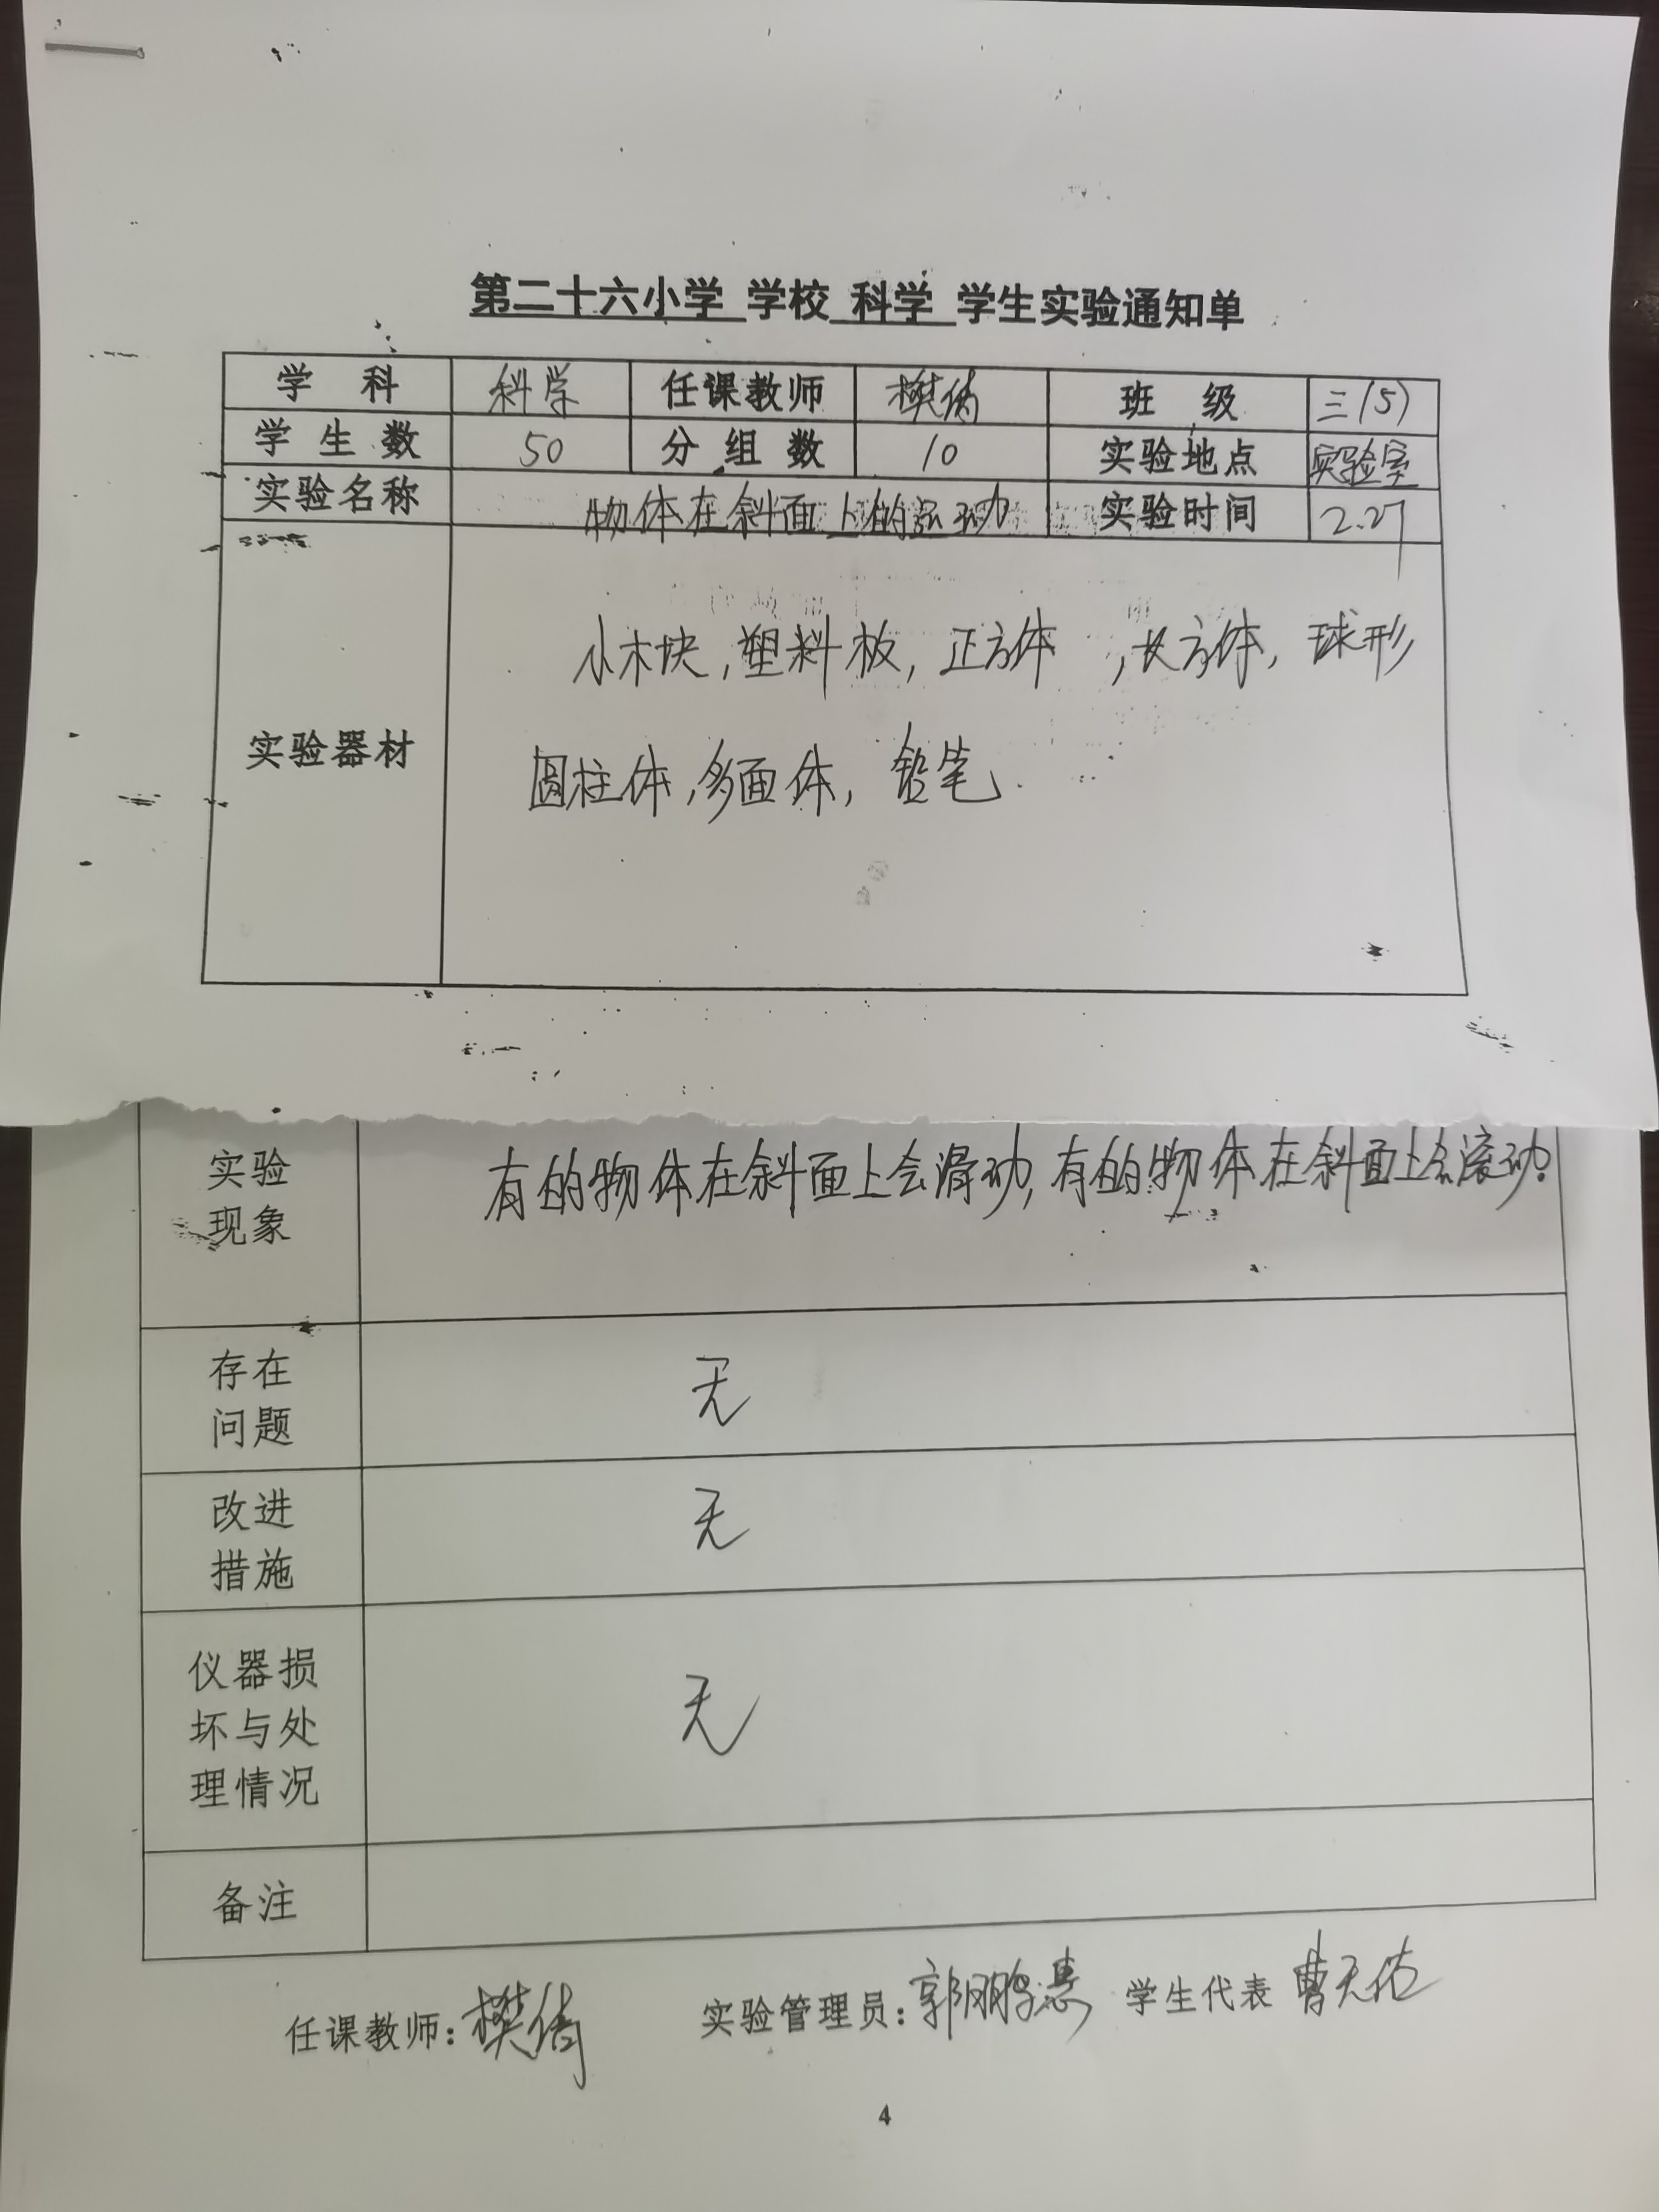 第二十六小学 学校 科学 学生实验通知单
学 科 科学 任课教师 樊倩 班 级 三(5)
学 生 数 50 分 组 数 10 实验地点 实验室
实验名称 物体在斜面上的运动 实验时间 2.27
实验器材
小木块,塑料板,正方体 ,长方体,球形
圆柱体,多面体,铅笔.
实验
现象
有的物体在斜面上会滑动,有的物体在斜面上会滚动.
存在
问题
无
改进
措施
无
仪器损
坏与处
理情况
无
备注
任课教师:樊倩 实验管理员:郭鹏惠 学生代表 曹天佑
4